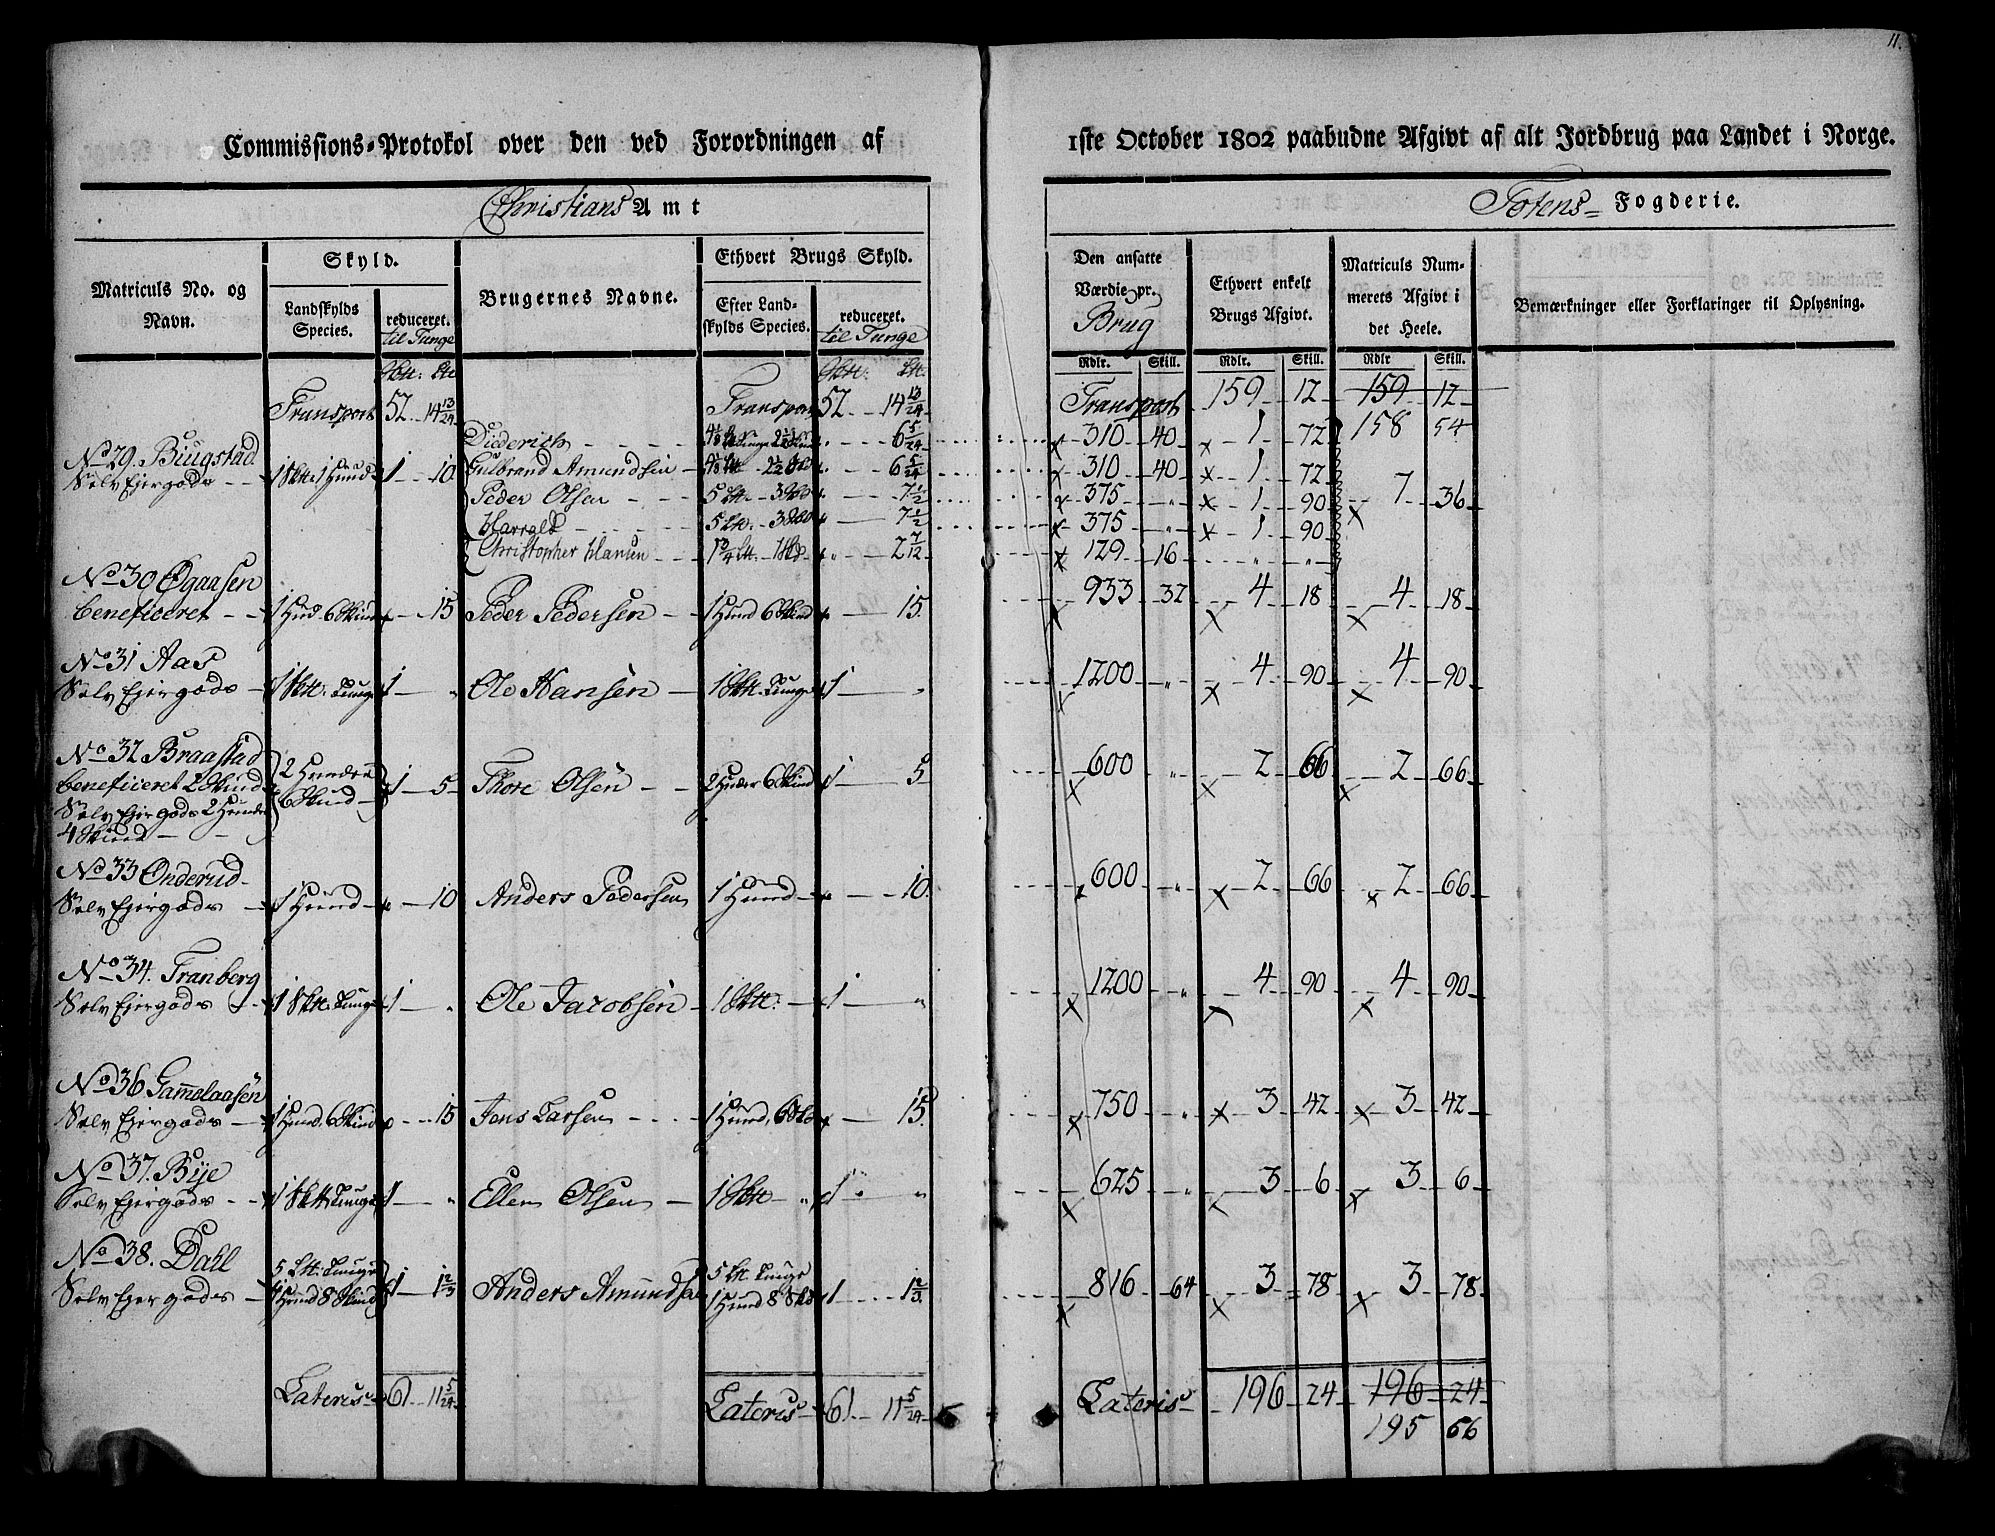 11.
Commissions-Protokol over den ved Forordningen af 1ste October 1802 paabudne Afgivt af alt Jordbrug paa Landet i Norge.
Christians Amt
Totens Fogderie.
Matriculs No. og Navn.
Skyld.
Landskylds Species.
reduceret. til Tunge
Brugernes Navne.
Ethvert Brugs Skyld.
Efter Landskylds Species.
reduceret. til Tunge
Den ansatte Værdie pr. Brug
Ethvert enkelt Brugs Afgivt.
Matriculs Nummerets Afgivt i det Heele.
Bemærkninger eller Forklaringer til Oplysning.
Rdlr. Skill. Rdlr. Skill. Rdlr Skill.
Transport 52 14 13/24 Transport 52 14 13/24 Transport 159 12 159 12
158 54
Diederich 6 5/24 310 40 1 72
No 29. Biugstad
Selv Ejergods 1 10 Gulbrand Amundsen 6 5/24 310 40 1 72
Peder Olsen 7 1/2 375 1 90 7 36
Harrald 7 1/2 375 1 90
Christopher Hansen 2 7/12 129 16
No 30 Øgaasen
beneficeret 1 Hud 6 Skind 15 Peder Pedersen 1 Huud 6 Skind 15. 933 32 4 18 4 18
No 31 Aas
Selv Ejergods 1 Tunge 1 Ole Hansen 1 Tunge 1 1200 4 90 4 90
No 32 Braastad
beneficeret 2 Skind
Selv Ejergods 2 Huuder
4 Skind
2 Huuder
6 Skind 1 5 Thore Olsen 2 Huder 6 Skind 1 5 600 2 66 2 66
No 33 Onderud
Selv Ejergods 1 Huud 10 Anders Pedersen 1 Huud 10. 600 2 66 2 66
No 34. Tranberg
Selv Ejergods 1 Tunge 1 Ole Jacobsen 1 1 1200 4 90 4 90
No 36 Gamelaasen
Selv Ejergods 1 Huud, 6 Skind 15 Jens Larsen 1 Huud, 15. 750 3 42 3 42
No 37. Bye
Selv Ejergods 1 Tunge 1 Ellen Olsen 1 1 625 3 6 3 6
No 38. Dahl
Selv Ejergods 5 Tunge
1 Huud 8 Skind 1 1 2/3 Anders Amundsen 5 Tunge
1 Huud 8 1 1 2/3. 816 64 3 78 3 78
Lateris 61 11 5/24 Lateris 61 11 5/24 Lateris 196 24 196 24
195 66